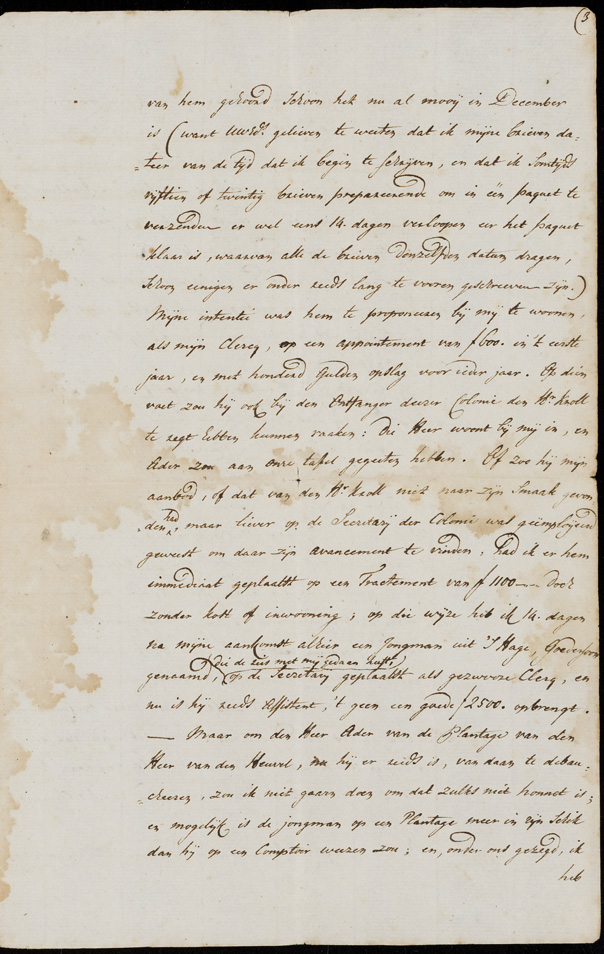 (3
van hem gehoord schoon het nu al mooij in December
is (want UWEds. gelieven te weeten dat ik mijne brieven da„
„teer van de tijd dat ik begin te schrijven, en dat ik Somtijds
vijftien of twintig brieven prepareerende om in één paquet te
verzenden er wel eens 14. dagen verloopen eer het paquet
klaar is, waarvan alle de brieven donzelfden datum dragen,
schoon eenigen er onder reeds lang te vooren geschreeven zijn.)
Mijne intentie was hem te proponeeren bij mij te woonen,
als mijn Clercq, op een appointement van f600. in 't eerste
jaar, en met honderd Gulden opslag voor ieder jaar. Op dien
voet zou hij ook bij den Ontfanger deezer Colonie den Hr. Knoll
te regt hebben kunnen raaken: die Heer woont bij mij in, en
Ader zou aan onze tafel gegeeten hebben. Of zoo hij mijn
aanbod, of dat van den Hr. Knoll niet naar zijn Smaak gevon„
„den had, maar liever op de Secretarij der Colonie was geëmploijeerd
geweest om daar zijn avancement te vinden, had ik er hem
immediaat geplaatst op een Tractement van f1100 — doch
zonder kost of inwooning; op die wijze heb ik 14. dagen
na mijne aankomst alhier een Jongman uit 'S Hage,
genaamd, (die de reis met mij gedaan heeft) op de Secretary geplaatst als gezwoore Clercq, en
nu is hij reeds Assistent, 't geen een goede f2500. opbrengt.
— Maar om den Heer Ader van de Plantage van den
Heer van den Heuvel, nu hij er reeds is, van daan te debau„
„cheeren, zou ik niet gaarn doen om dat zulks niet honnet is;
en mogelijk is de jongman op een Plantage meer in zijn Schik
dan hij op een Comptoir weezen zou; en, onder ons gezegd, ik
heb